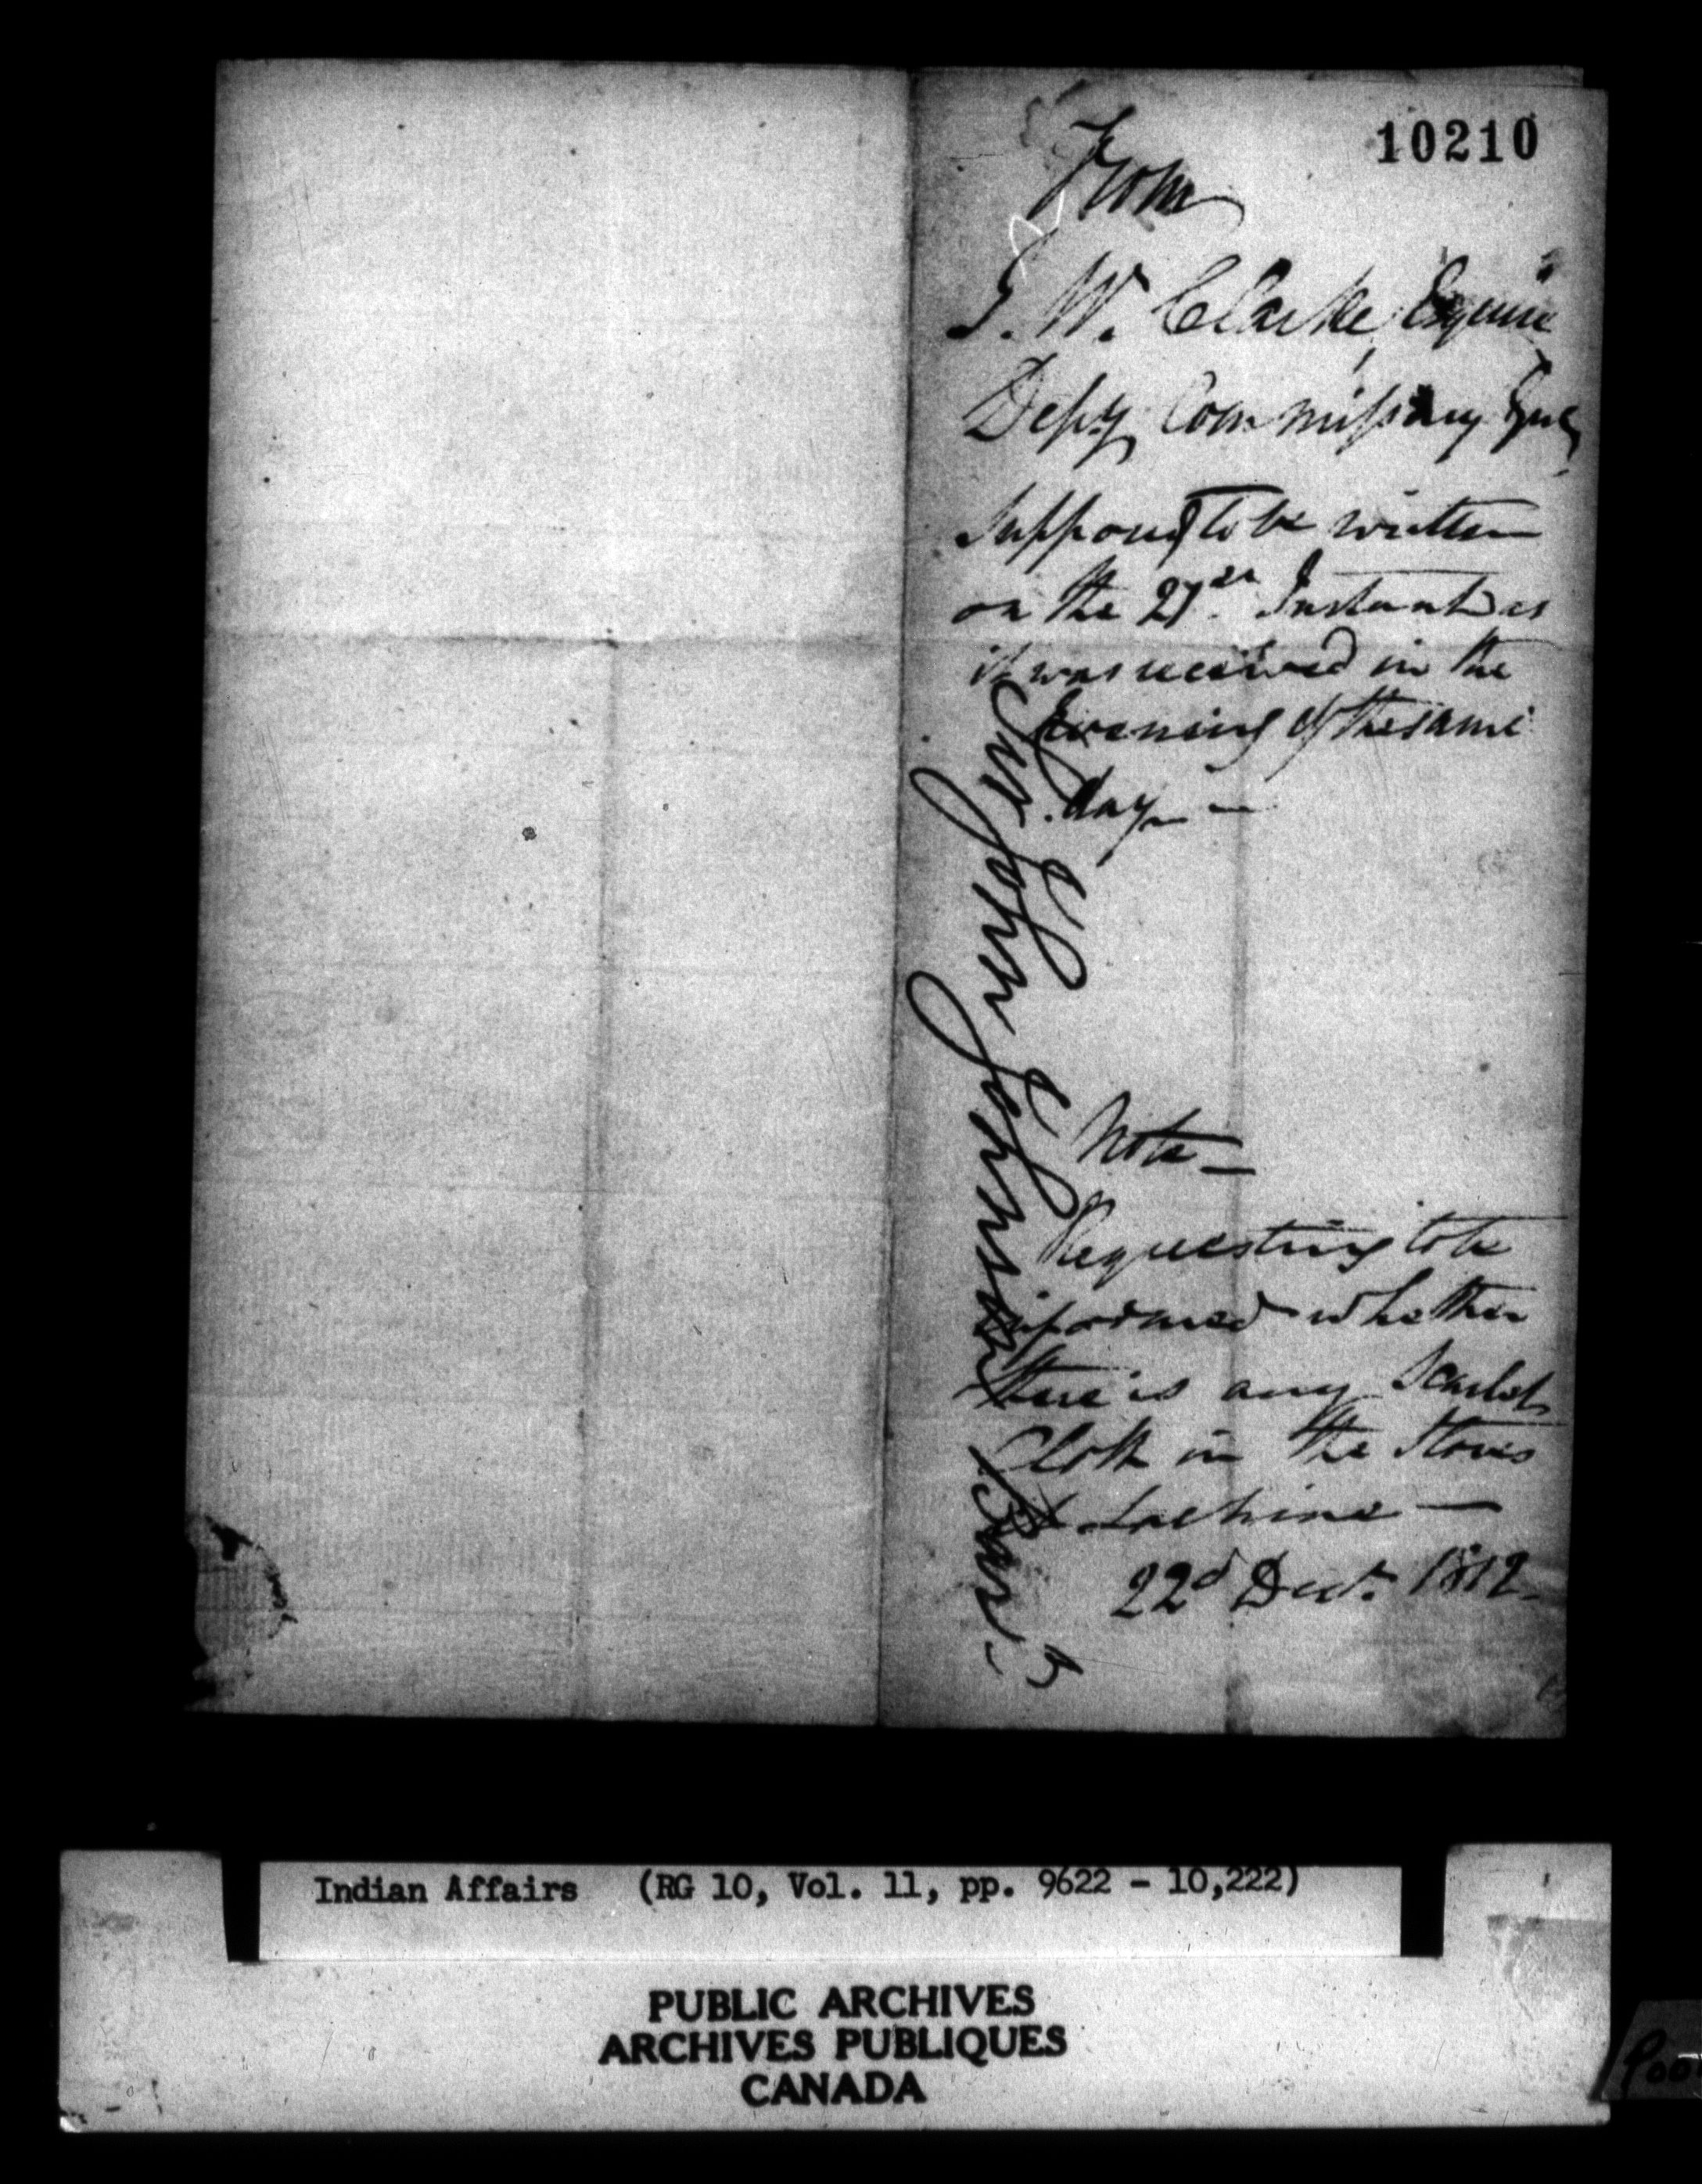 10210
From
I. W. Clarke Esquire
Depy Commissary Genl
Supposed to be written
on the 21st Instant as
it was received in the
Evening of the same
day —
Sir John Johnson Bart
Note —
Requesting to be
informed whether
there is any Scarlet
Cloth in the Stores
at Lachine —
22d Decr. 1812.
Indian Affairs (RG 10, Vol. 11, pp. 9622 - 10,222)
PUBLIC ARCHIVES
ARCHIVES PUBLIQUES
CANADA